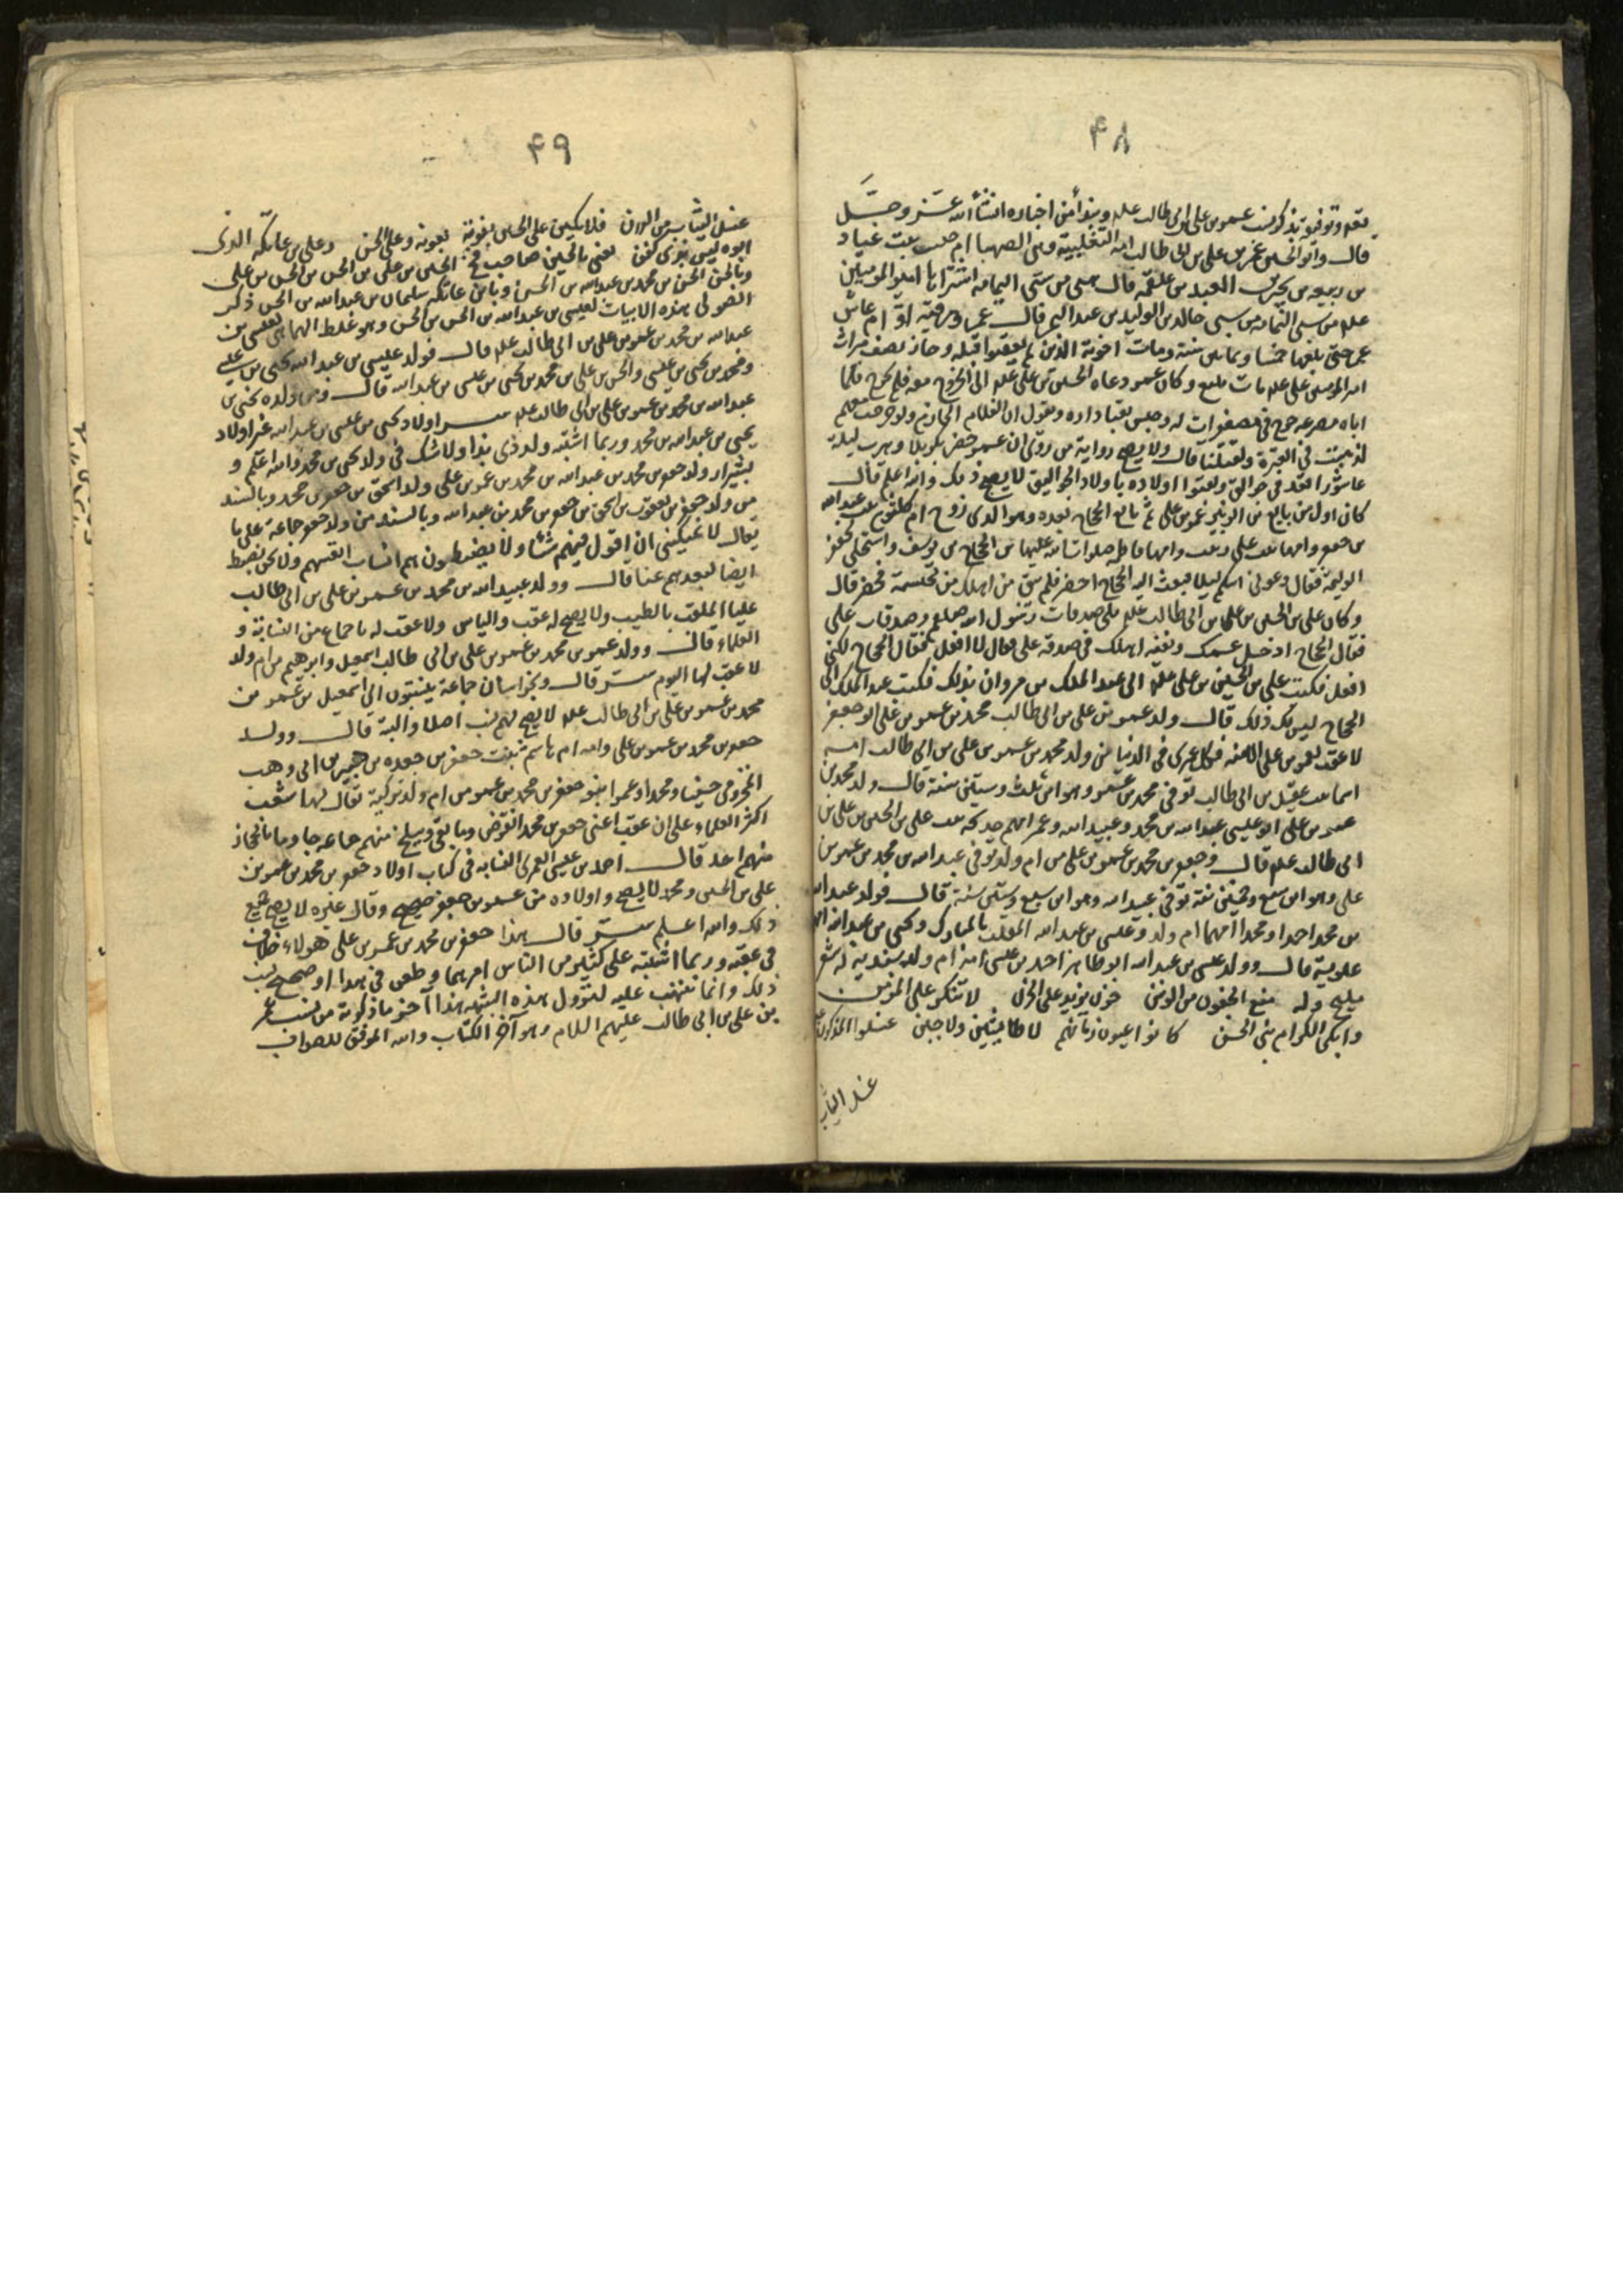 ۴۸
نذكر نسب عمر بن علي بن ابي طالب علم ونبدأ من اخباره انشأ الله عز وجل
قال وابو الحسن عمر بن علي بن ابي طالب امه التغلبية وهي الصهبا ام حبيب بنت عباد
بن ربيعه بن العبد بن علقمه قال هي من سبي اليمامه اشتراها امير المؤمنين
علم من سبي خالد بن الوليد من قال عمر ورقية توأم عاش
عمر حتى بلغ خمسا وثمانين سنة ومات اخوته الذين لم يعقبوا قبله وحاز نصف ميراث
امير المومنين علي علم مات بينبع وكان عمر دعاه الحسين بن علي علم الى الخروج معه فلم يخرج فلما
اتاه مصرعه خرج في معصفرات له وجلس بفنا داره ويقول انا الغلام الحازم ولو خرجت معهم
لذهبت في المعركة ولقتلنا قال ولا يصح رواية من روى ان عمر حضر كربلا وهرب ليلة
عاشورا قعد في جوالق ولقبوا اولاده باولاد الجواليق لا يصح ذلك والله اعلم قال
كان اول من بايع ابن الزبير عمر بن علي ثم بايع الحجاج بعده وهو الذي زوج ام كلثوم بنت عبد الله
بن جعفر وامها بنت علي وامها فاطمه صلوات الله عليها من الحجاج بن يوسف
الوليمة فقال دعوني ليلا فبعث اليه الحجاج احضر
وكان علي بن الحسين بن علي بن ابي طالب علم يلي صدقات رسول الله صلعم وصدقات علي
فقال الحجاج ادخل عمك وبقية اهلك في صدقة علي فقال لا افعل فقال الحجاج لكني
افعل فكتب علي بن الحسين بن علي علم الى عبد الملك بن مروان بذلك فكتب عبد الملك الى
الحجاج ليس لك ذلك قال ولد عمر بن علي بن ابي طالب محمد بن عمر بن علي ابو جعفر
لا عقب لعمر بن علي الا منه فكل عمري في الدنيا من ولد محمد بن عمر بن علي بن ابي طالب امه
اسما بنت عقيل بن ابي طالب توفي محمد بن عمر وهو ابن ثلث وستين سنة قال ولد محمد بن
عمر بن علي ابو عيسى عبد الله بن محمد وعبيد الله وعمر امهم خديجه بنت علي بن الحسين بن علي بن
ابي طالب علم قال وجعفر بن محمد بن عمر بن علي من ام ولد توفي عبد الله بن محمد بن عمر بن
علي وهو ابن سبع وخمسين سنة توفي عبيد الله وهو ابن سبع وستين سنة قال فولد عبد الله
بن محمد احمد ومحمدا امهما ام ولد وعيسى بن عبد الله الملقب بالمبارك ويحيى بن عبد الله
علوية قال وولد عيسى بن عبد الله ابو طاهر احمد بن عيسى امه ام ولد سندية له شعر
مليح وله منع الجفون من الوسن حزن يزيد على الحزن
وابكي الكرام بني الحسن كانوا عيون زمانهم لا طائشين ولا جبن غسلوا
غسل الثياب
۴۹
غسل الثياب من الدرن فلابكين على الحسين بعولة وعلى الحسن وعلى بن عاتكه الذي
ابوه ليس بذي كفن يعني بالحسين صاحب فخ الحسين بن علي بن الحسن بن الحسن بن علي
وبالحسن الحسن بن محمد بن عبد الله بن الحسن وبابن عاتكه سليمان بن عبد الله بن الحسن ذكر
الصولي هذه الابيات لعيسى بن عبد الله بن الحسن بن الحسن وهو غلط انما هي لعيسى بن
عبد الله بن محمد بن عمر بن علي بن ابي طالب علم قال فولد عيسى بن عبد الله يحيى بن عيسى
ومحمد بن يحيى بن عيسى والحسن بن علي بن محمد بن يحيى بن عيسى بن عبد الله قال ومن ولده يحيى بن
عبد الله بن محمد بن عمر بن علي بن ابي طالب علم اولاد يحيى بن عيسى بن عبد الله غير اولاد
يحيى بن عبد الله بن محمد وربما اشتبه ولد ذي بذا ولا شك في ولد يحيى بن محمد والله اعلم و
بشيراز ولد جعفر بن محمد بن عبد الله بن محمد بن عمر بن علي ولد اسحق بن جعفر بن محمد وبالسند
من ولد جعفر بن يعقوب بن اسحق بن جعفر بن محمد بن عبد الله وبالسند من ولد جعفر جماعة علي ما
يقال لا يمكنني ان اقول فيهم شيئا ولا يضبطون هم انساب انفسهم ولا نحن نضبط
ايضا لبعدهم عنا قال وولد عبيد الله بن محمد بن عمر بن علي بن ابي طالب
عليا الملقب بالطيب ولا يصح له عقب والياس ولا عقب له باجماع من النسابة و
العلماء قال وولد عمر بن محمد بن عمر بن علي بن ابي طالب اسمعيل وابرهيم من ام ولد
لا عقب لهما اليوم قال وبخراسان جماعة ينتسبون الى اسمعيل بن عمر بن
محمد بن عمر بن علي بن ابي طالب علم لا يصح لهم نسب اصلا والبتة قال وولد
جعفر بن محمد بن عمر بن علي وامه ام هاشم بنت جعفر بن جعده بن هبيره بن ابي وهب
المخزومي حسينا ومحمدا وعمرا بنو جعفر بن محمد بن عمر من ام ولد تركية يقال لها شغب
اكثر العلماء على ان عقب اعني جعفر بن محمد انقرض وما بقي وببلخ منهم جماعه جا وما بالحجاز
منهم احد قال احمد بن عيسى العمري النسابه في كتاب اولاد جعفر بن محمد بن عمر بن
علي بن الحسين ومحمد لا يصح واولاده من عمر بن جعفر صحيح وقال غيره لا يصح جميع
ذلك والله اعلم قال هذا جعفر بن محمد بن عمر بن علي هولاء خلاف
في عقبه وربما اشتبه على كثير من الناس امرهما وطعن في هذا او صحح نسب
ذلك وانما نبهت عليه لتزول هذه الشبهه هذا آخر ما ذكرته من نسب عمر
بن علي بن ابي طالب عليهم السلام وهو آخر الكتاب والله الموفق للصواب